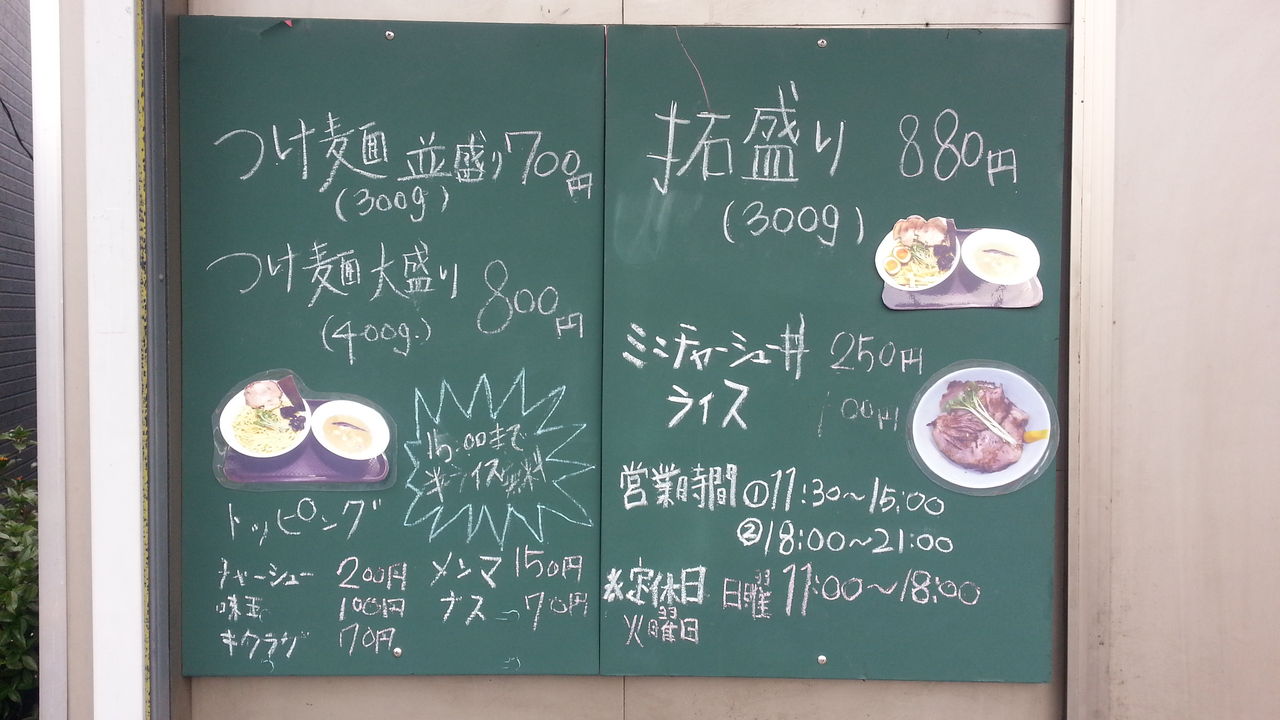 つけ麺 並盛り 700円
(300g)
つけ麺 大盛り 800円
(400g.)
15:00まで
半ライス無料
トッピング
チャーシュー 200円
味玉 100円
キクラゲ 70円
メンマ 150円
70円
拓石盛り 880円
(300g)
ミニチャーシュー丼 250円
ライス 100円
営業時間 ①11:30～15:00
②18:00～21:00
日曜 11:00～18:00
※定休日
火曜日